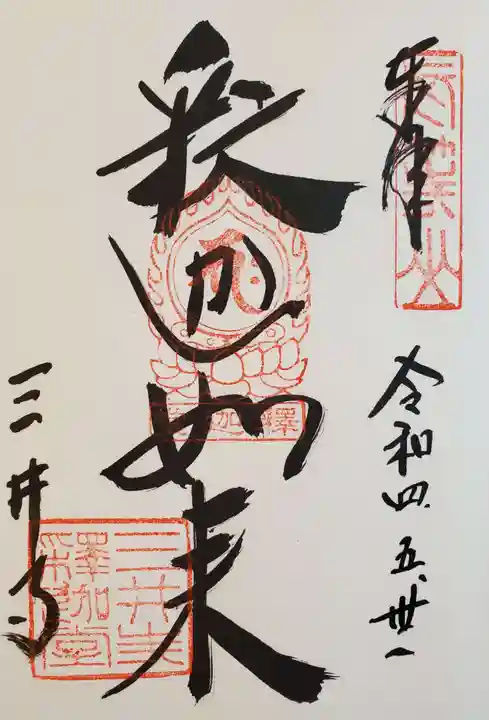 奉拝
令和四、五、卅一
釈迦如来
三井寺
長等山
釋迦
三井寺
釋迦堂